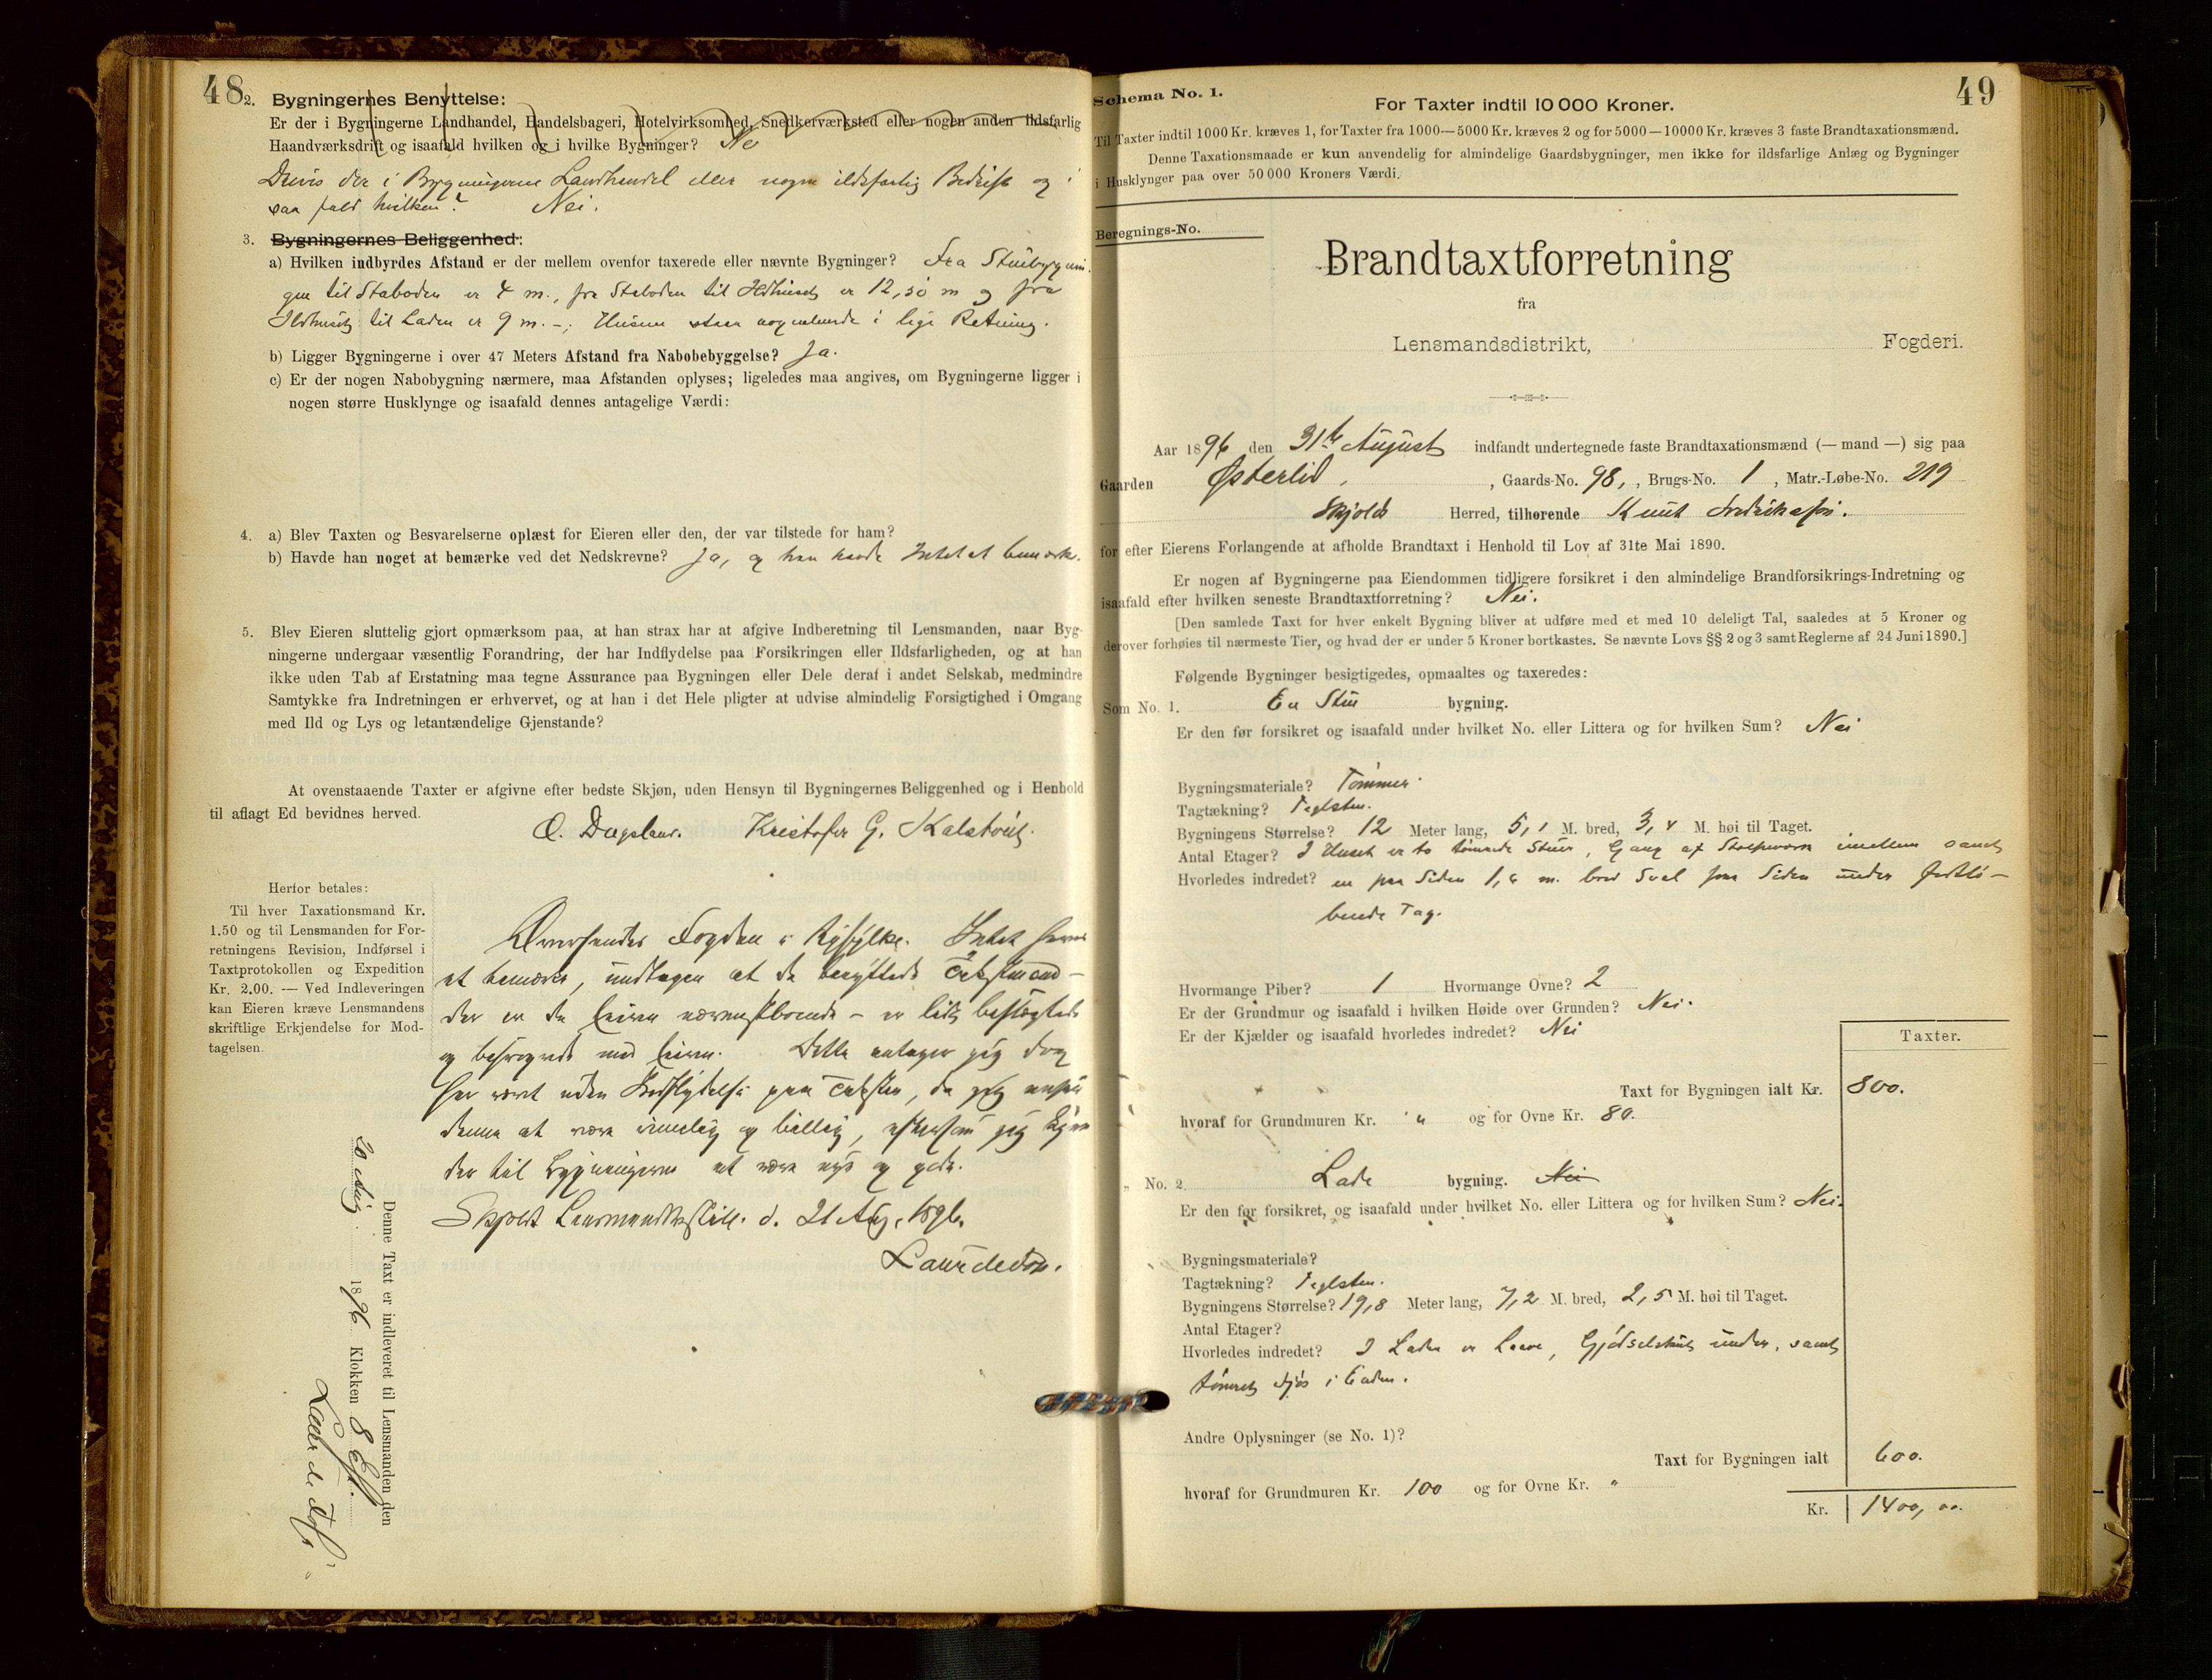 48
2. Bygningernes Benyttelse:
Er der i Bygningerne Landhandel, Handelsbageri, Hotelvirksomhed, Snedkerværksted eller nogen anden ildsfarlig
Haandværksdrift og isaafald hvilken og i hvilke Bygninger?
Drives der i Bygningerne Landhandel eller nogen ildsfarlig Bedrift og i
saa fald hvilken? Nei.
3. Bygningernes Beliggenhed:
a) Hvilken indbyrdes Afstand er der mellem ovenfor taxerede eller nævnte Bygninger? Fra Stuebygnin-
gen til Staboden er 4 m., fra Staboden til Ildhuset er 12,50 m og fra
Ildhuset til Laden er 9 m. -; Husene staar nogenlunde i lige Retning.
b) Ligger Bygningerne i over 47 Meters Afstand fra Nabobebyggelse? Ja.
c) Er der nogen Nabobygning nærmere, maa Afstanden oplyses; ligeledes maa angives, om Bygningerne ligger i
nogen større Husklynge og isaafald dennes antagelige Værdi:
4. a) Blev Taxten og Besvarelserne oplæst for Eieren eller den, der var tilstede for ham?
b) Havde han noget at bemærke ved det Nedskrevne? Ja, og han havde Intet at bemærke.
5. Blev Eieren sluttelig gjort opmærksom paa, at han strax har at afgive Indberetning til Lensmanden, naar Byg-
ningerne undergaar væsentlig Forandring, der har Indflydelse paa Forsikringen eller Ildsfarligheden, og at han
ikke uden Tab af Erstatning maa tegne Assurance paa Bygningen eller Dele deraf i andet Selskab, medmindre
Samtykke fra Indretningen er erhvervet, og at han i det Hele pligter at udvise almindelig Forsigtighed i Omgang
med Ild og Lys og letantændelige Gjenstande?
At ovenstaaende Taxter er afgivne efter bedste Skjøn, uden Hensyn til Bygningernes Beliggenhed og i Henhold
til aflagt Ed bevidnes herved.
Kristofer G.
Herfor betales:
Til hver Taxationsmand Kr.
1.50 og til Lensmanden for For-
retningens Revision, Indførsel i
Taxtprotokollen og Expedition
Kr. 2.00. — Ved Indleveringen
kan Eieren kræve Lensmandens
skriftlige Erkjendelse for Mod-
tagelsen.
Oversendes Fogden i Ryfylke. Intet haves
at bemærke, undtagen at de benyttede Takstmænd -
der er de Eieren nærmestboende - er lidt beslægtede
og besvogrede med Eieren. Dette antager jeg dog
har været uden Indflydelse paa Taksten, da jeg anser
denne at være rimelig og billig, eftersom jeg kjen-
der til Bygningerne at være nye og gode.
Skjold d. 21 Aug. 1896.
Denne Taxt er indleveret til Lensmanden den
20 Aug. 1896 Klokken 8 Eft.
Schema No. 1.
For Taxter indtil 10 000 Kroner.
49
Til Taxter indtil 1000 Kr. kræves 1, for Taxter fra 1000—5000 Kr. kræves 2 og for 5000—10000 Kr. kræves 3 faste Brandtaxationsmænd.
Denne Taxationsmaade er kun anvendelig for almindelige Gaardsbygninger, men ikke for ildsfarlige Anlæg og Bygninger
i Husklynger paa over 50 000 Kroners Værdi.
Beregnings-No.
Brandtaxtforretning
fra
Lensmandsdistrikt, Fogderi.
Aar 1896 den 31te August indfandt undertegnede faste Brandtaxationsmænd (— mand —) sig paa
Gaarden Østerlid, , Gaards-No. 98, , Brugs-No. 1 , Matr.-Løbe-No. 219
Skjold Herred, tilhørende Knut
for efter Eierens Forlangende at afholde Brandtaxt i Henhold til Lov af 31te Mai 1890.
Er nogen af Bygningerne paa Eiendommen tidligere forsikret i den almindelige Brandforsikrings-Indretning og
isaafald efter hvilken seneste Brandtaxtforretning? Nei.
[Den samlede Taxt for hver enkelt Bygning bliver at udføre med et med 10 deleligt Tal, saaledes at 5 Kroner og
derover forhøies til nærmeste Tier, og hvad der er under 5 Kroner bortkastes. Se nævnte Lovs §§ 2 og 3 samt Reglerne af 24 Juni 1890.]
Følgende Bygninger besigtigedes, opmaaltes og taxeredes:
Som No. 1. En Stue bygning.
Er den før forsikret og isaafald under hvilket No. eller Littera og for hvilken Sum? Nei
Bygningsmateriale? Tømmer.
Tagtækning? Teglsten.
Bygningens Størrelse? 12 Meter lang, 5,1 M. bred, 3,4 M. høi til Taget.
Antal Etager? I Huset er to tømrede Stuer, Gang af imellem samt
Hvorledes indredet? en paa Siden 1,6 m. bred Sval paa Siden under fortlø-
bende Tag.
Hvormange Piber? 1 Hvormange Ovne? 2
Er der Grundmur og isaafald i hvilken Høide over Grunden? Nei.
Er der Kjælder og isaafald hvorledes indredet? Nei
Taxter.
Taxt for Bygningen ialt Kr. 800.
hvoraf for Grundmuren Kr. " og for Ovne Kr. 80.
" No. 2. Lade bygning. Nei
Er den før forsikret, og isaafald under hvilket No. eller Littera og for hvilken Sum? Nei.
Bygningsmateriale?
Tagtækning? Teglsten.
Bygningens Størrelse? 19,8 Meter lang, 7,2 M. bred, 2,5 M. høi til Taget.
Antal Etager?
Hvorledes indredet? I Laden er Laave, Gjødselshus under, samt
tømret Fjøs i Enden.
Andre Oplysninger (se No. 1)?
Taxt for Bygningen ialt 600.
hvoraf for Grundmuren Kr. 100 og for Ovne Kr. "
Kr. 1400,00.